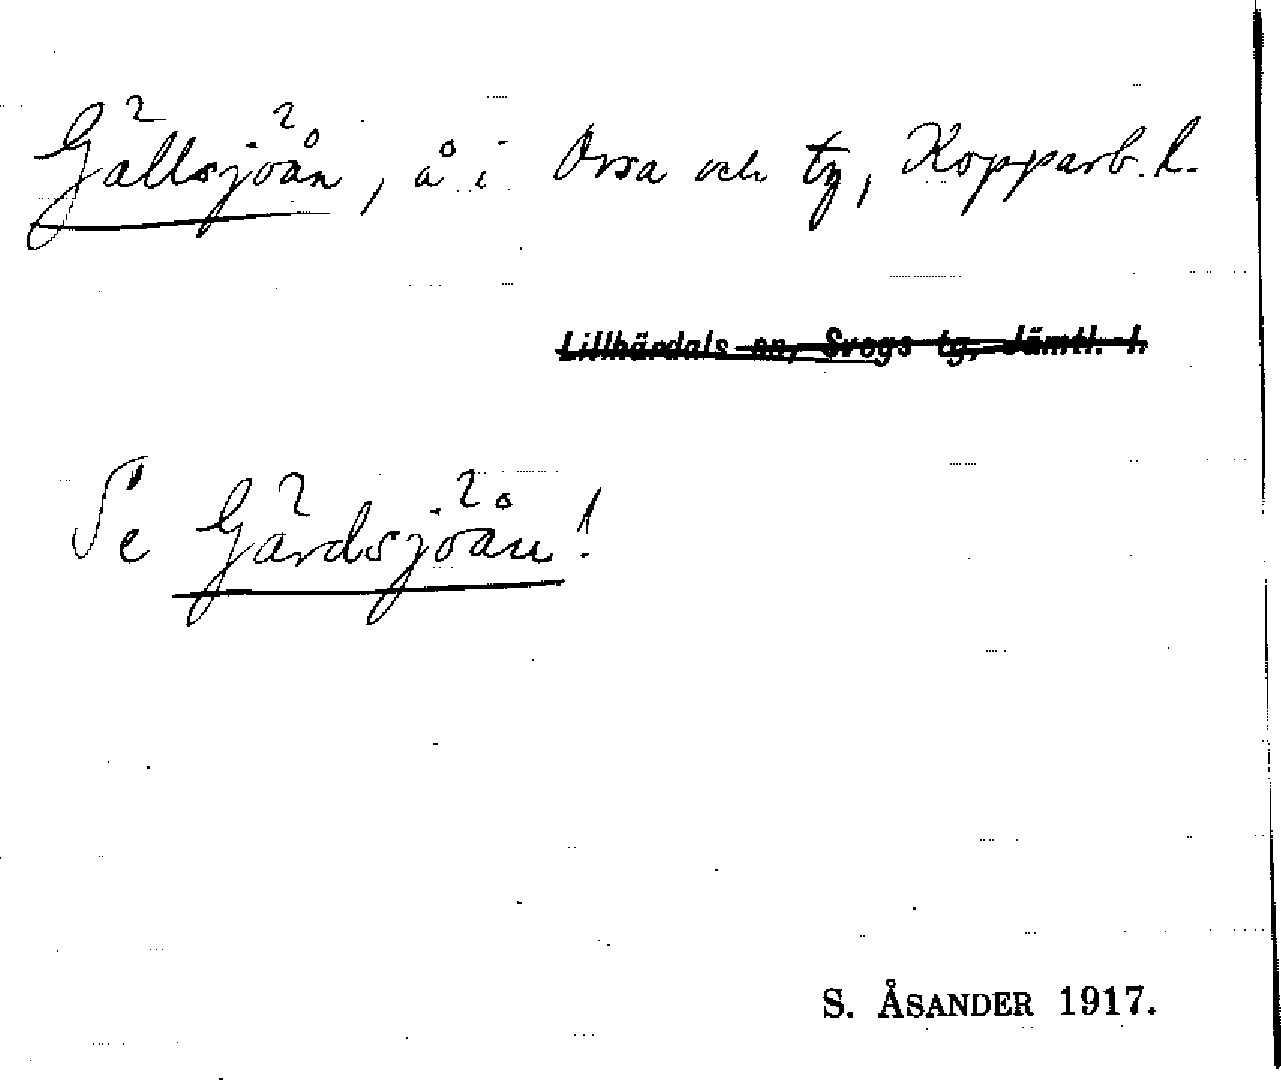 Gällsjöån, å i Orsa och tg, Kopparb. l.
Lillhärdals sn, Svegs tg, Jämtl. l.
Se Gärdsjöån!
S. ÅSANDER 1917.